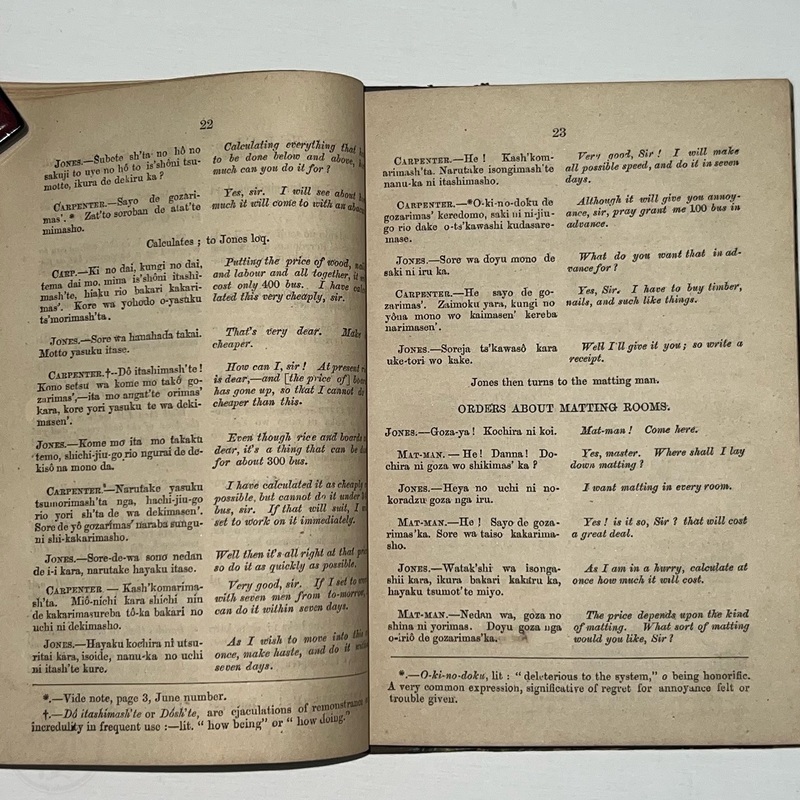 22
JONES.—Subete sh'ta no hô no
sakuji to uye no hô to is'shôni tsu-
motte, ikura de dekiru ka ?
CARPENTER.—Sayo de gozari-
mas'. * Zat'to soroban de atat'te
mimasho.
Calculates ; to Jones loq.
CARP.—Ki no dai, kungi no dai,
tema dai mo, mina is'shôni itashi-
mash'te, hiaku rio bakari kakari-
mas'. Kore wa yohodo o-yasuku
ts'morimash'ta.
JONES.—Sore wa hanahada takai.
Motto yasuku itase.
CARPENTER.†--Dô itashimash'te !
Kono setsu wa kome mo takô go-
zarimas',—ita mo angat'te orimas'
kara, kore yori yasuku te wa deki-
masen'.
JONES.—Kome mo ita mo takaku
temo, shichi-jiu-go rio ngurai de de-
kisô na mono da.
CARPENTER.—Narutake yasuku
tsumorimash'ta nga, hachi-jiu-go
rio yori sh'ta de wa dekimasen'.
Sore de yô gozarimas' naraba sungu-
ni shi-kakarimasho.
JONES.—Sore-de-wa sono nedan
de i-i kara, narutake hayaku itase.
CARPENTER — Kash'komarima-
sh'ta. Miô-nichi kara shichi nin
de kakarimasureba tô-ka bakari no
uchi ni dekimasho.
JONES.—Hayaku kochira ni utsu-
ritai kara, isoide, nanu-ka no uchi
ni itash'te kure.
Calculating everything that
to be done below and above,
much can you do it for ?
Yes, sir. I will see about
much it will come to with an
Putting the price of wood,
and labour and all together, it
cost only 400 bus. I have
lated this very cheaply, sir.
That's very dear. Make
cheaper.
How can I, sir ! At present
is dear,—and [the price of]
has gone up, so that I cannot
cheaper than this.
Even though rice and boards
dear, it's a thing that can be
for about 300 bus.
I have calculated it as cheaply
possible, but cannot do it under
bus, sir. If that will suit, I
set to work on it immediately.
Well then it's all right at that
so do it as quickly as possible.
Very good, sir. If I set to
with seven men from to-morrow,
can do it within seven days.
As I wish to move into this
once, make haste, and do it
seven days.
*.—Vide note, page 3, June number.
†.—Dô itashimash'te or Dôsh'te, are ejaculations of remonstrance
incredulity in frequent use :—lit. " how being" or " how doing."
23
CARPENTER.—He ! Kash'kom-
arimash'ta. Narutake isongimash'te
nanu-ka ni itashimasho.
CARPENTER.—*O-ki-no-doku de
gozarimas' keredomo, saki ni ni-jiu-
go rio dake o-ts'kawashi kudasare-
mase.
JONES.—Sore wa doyu mono de
saki ni iru ka.
CARPENTER.—He sayo de go-
zarimas'. Zaimoku yara, kungi no
yôna mono wo kaimasen' kereba
narimasen'.
JONES.—Soreja ts'kawasô kara
uke-tori wo kake.
Very good, Sir ! I will make
all possible speed, and do it in seven
days.
Although it will give you annoy-
ance, sir, pray grant me 100 bus in
advance.
What do you want that in ad-
vance for ?
Yes, Sir. I have to buy timber,
nails, and such like things.
Well I'll give it you ; so write a
receipt.
Jones then turns to the matting man.
ORDERS ABOUT MATTING ROOMS.
JONES.—Goza-ya ! Kochira ni koi.
MAT-MAN. — He ! Danna ! Do-
chira ni goza wo shikimas' ka ?
JONES.—Heya no uchi ni no-
koradzu goza nga iru.
MAT-MAN.—He ! Sayo de goza-
rimas'ka. Sore wa taiso kakarima-
sho.
JONES.—Watak'shi wa isonga-
shii kara, ikura bakari kakaru ka,
hayaku tsumot'te miyo.
MAT-MAN.—Nedan wa, goza no
shina ni yorimas. Doyu goza nga
o-iriô de gozarimas'ka.
Mat-man ! Come here.
Yes, master. Where shall I lay
down matting ?
I want matting in every room.
Yes ! is it so, Sir ? that will cost
a great deal.
As I am in a hurry, calculate at
once how much it will cost.
The price depends upon the kind
of matting. What sort of matting
would you like, Sir ?
*.—O-ki-no-doku, lit : " deleterious to the system," o being honorific.
A very common expression, significative of regret for annoyance felt or
trouble given.